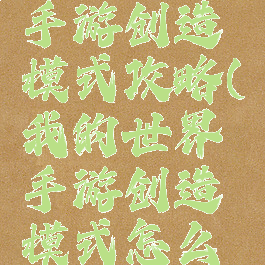 手游创造
模式攻略(
我的世界
手游创造
模式怎么